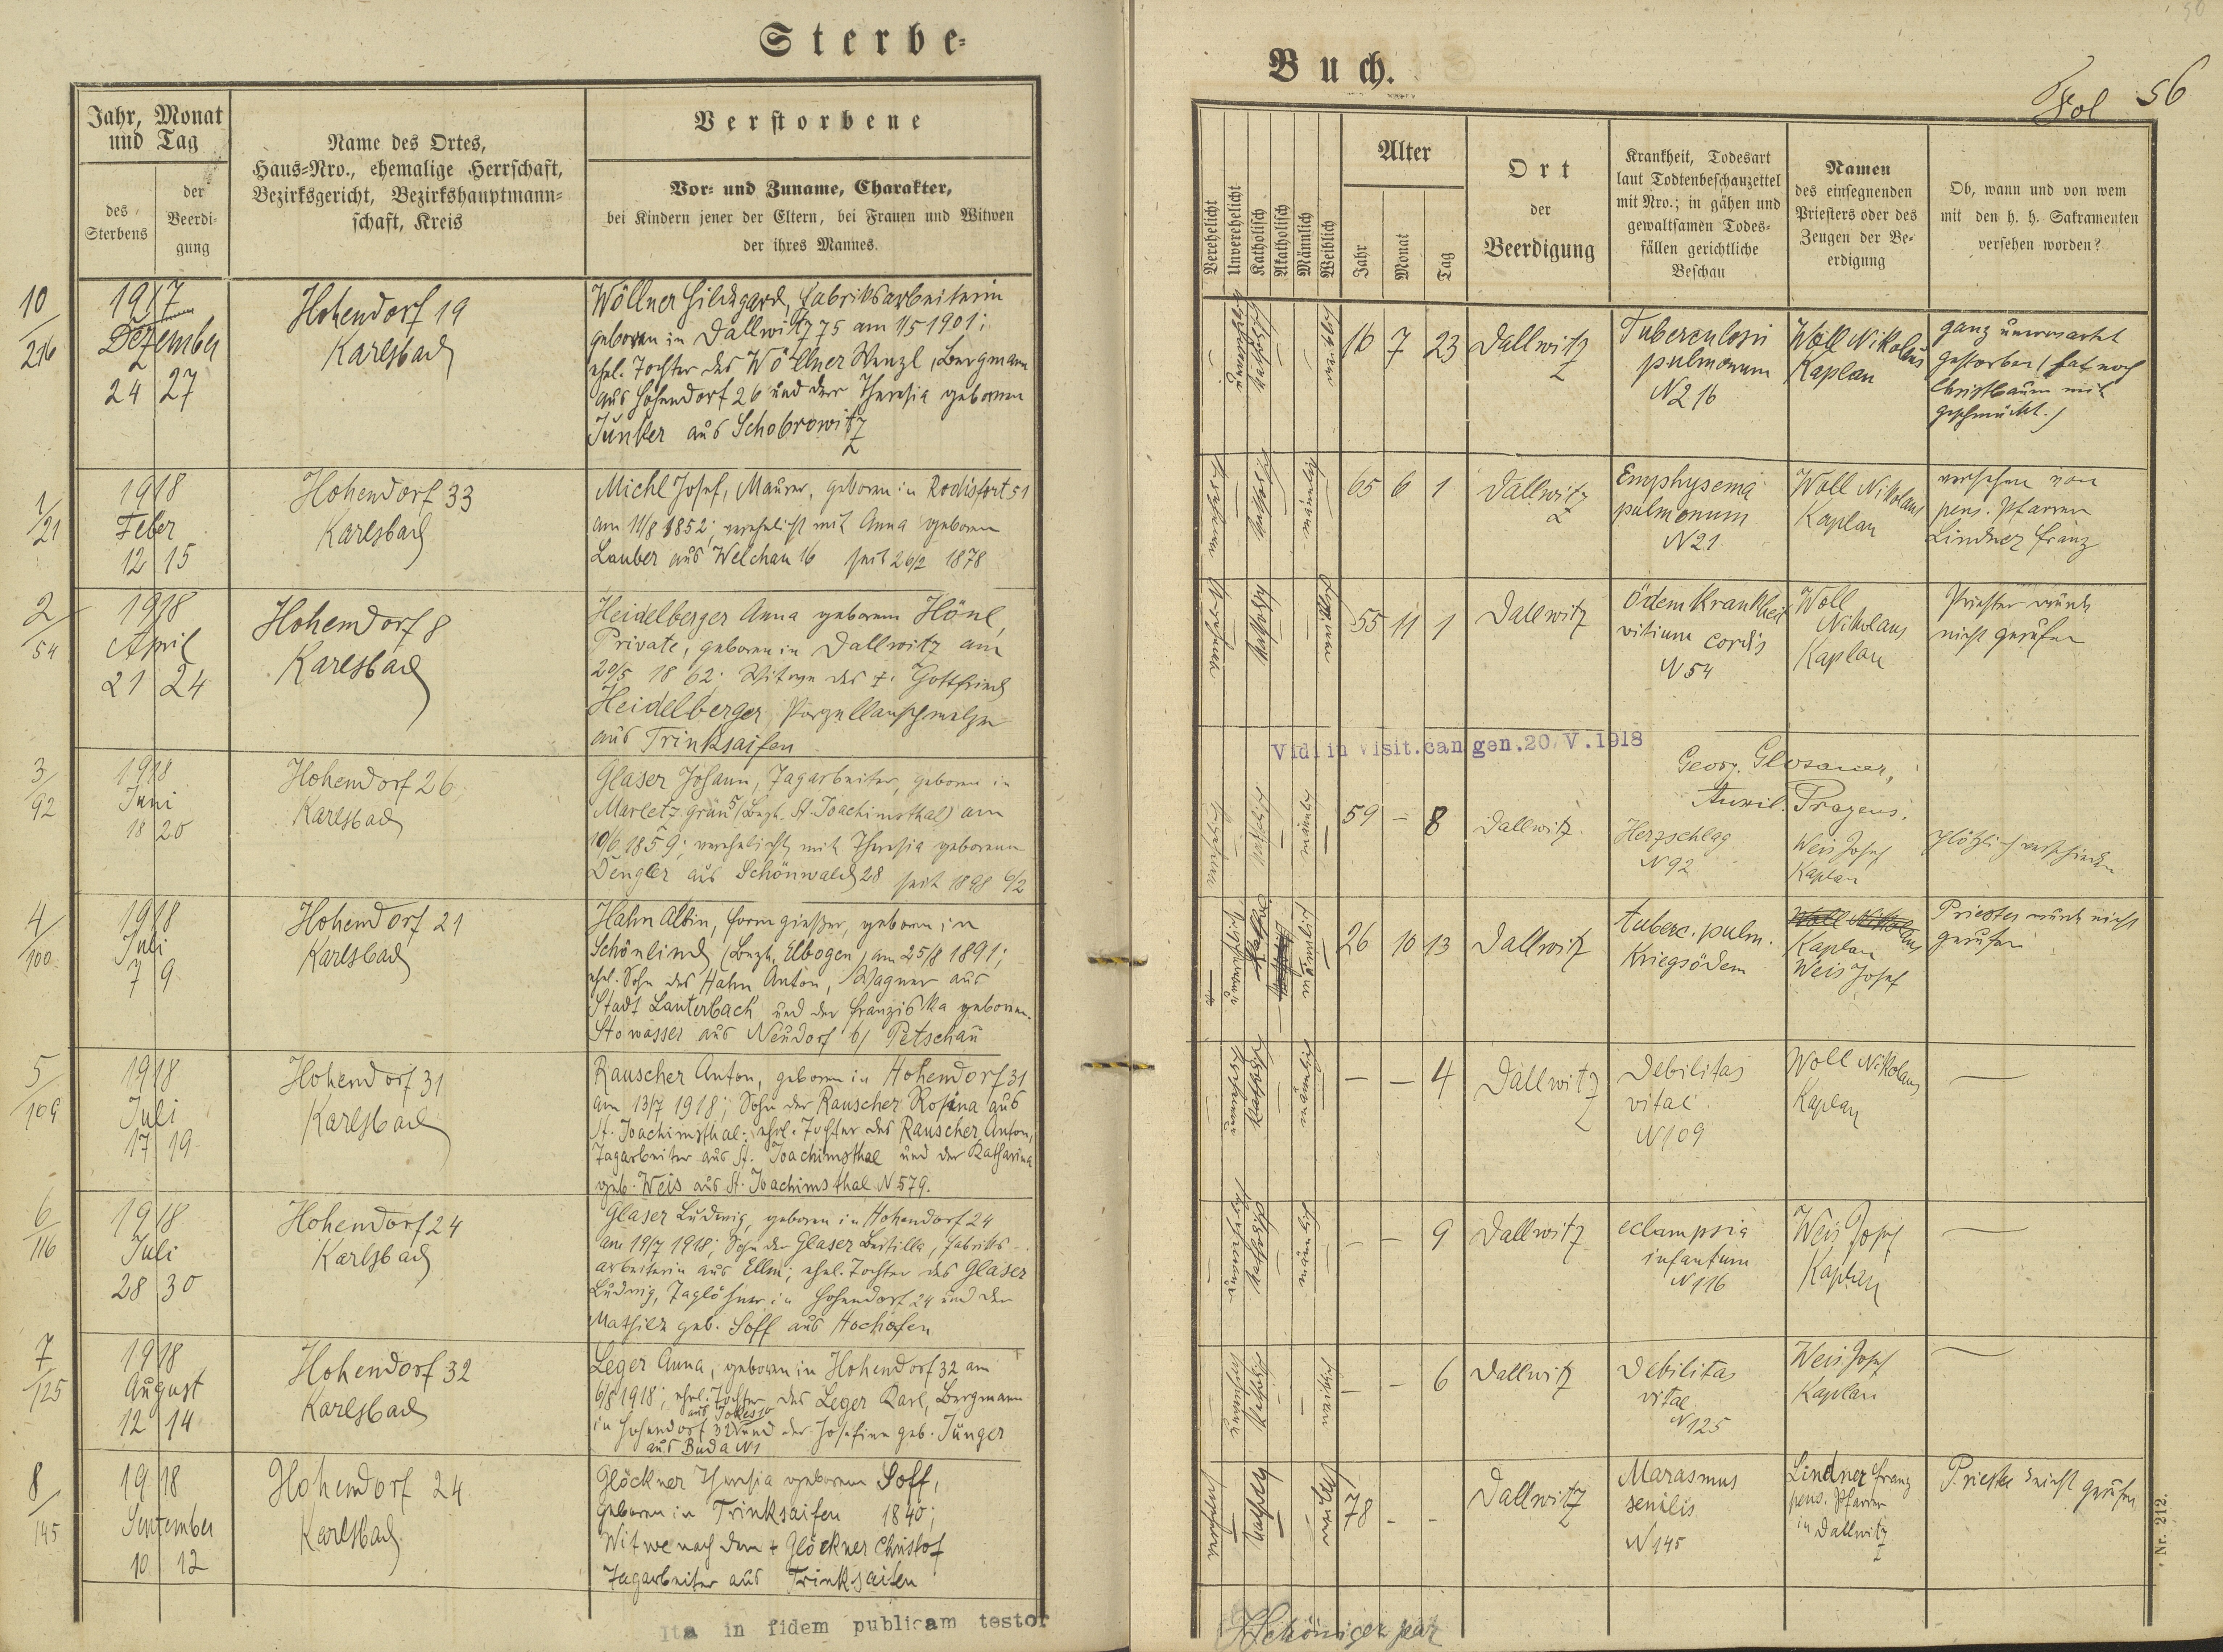 Sterbe-
Buch.
Fol 56
Jahr, Monat
und Tag
des
Sterbens
der
Beerdi-
gung
Name des Ortes,
Haus-Nro., ehemalige Herrschaft,
Bezirksgericht, Bezirkshauptmann-
schaft, Kreis
Verstorbene
Vor- und Zuname, Charakter,
bei Kindern jener der Eltern, bei Frauen und Witwen
der ihres Mannes.
Verehelicht
Unverehelicht
Katholisch
Akatholisch
Männlich
Weiblich
Alter
Jahr
Monat
Tag
Ort
der
Beerdigung
Krankheit, Todesart
laut Todtenbeschauzettel
mit Nro.; in gähen und
gewaltsamen Todes-
fällen gerichtliche
Beschau
Namen
des einsegnenden
Priesters oder des
Zeugen der Be-
erdigung
Ob, wann und von wem
mit den h. h. Sakramenten
versehen worden?
10/216
1917
Dezember
24 27
Hohendorf 19
Karlsbad
Wöllner Hildegard, Fabriksarbeiterin
geboren in Dallwitz 75 am 1/5 1901;
ehel. Tochter des Wöllner Wenzl, Bergmann
aus Hohendorf 26 und der Theresia geborenen
Junker aus Schobrowitz
16 7 23
Dallwitz
Tuberculosis
pulmonum
N 216
Woll Nikolaus
Kaplan
ganz unerwartet
gestorben (hat noch
Christbaum mit
geschmückt.)
1/21
1918
Feber
12 15
Hohendorf 33
Karlsbad
Michl Josef, Maurer, geboren in Rodisfort 51
am 11/8 1852; verehelicht mit Anna geboren
Lauber aus Welchau 16 seit 26/2 1878
verehelicht
katholisch
männlich
65 6 1
Dallwitz
Emphysema
pulmonum
N 21
Woll Nikolaus
Kaplan
versehen von
pens. Pfarrer
Lindner Franz
2/54
1918
April
21 24
Hohendorf 8
Karlsbad
Heidelberger Anna geborene Hönl,
Private, geboren in Dallwitz am
20/5 1862; Witwe des + Gottfried
Heidelberger Porzellanschmelzer
aus Trinksaifen
katholisch
weiblich
55 11 1
Dallwitz
Ödemkrankheit
vitium cordis
N 54
Woll
Nikolaus
Kaplan
Priester wurde
nicht gerufen
Vidi in visit. can. gen. 20/V. 1918
3/92
1918
Juni
18 20
Hohendorf 26
Karlsbad
Glaser Johann, Tagarbeiter, geboren in
Marletzgrün 5 (Bezh. St. Joachimsthal) am
10/6 1859; verehelicht mit Theresia geborenen
Dengler aus Schönwald 28 seit 1898 6/2
katholisch
männlich
59 – 8
Dallwitz
Herzschlag
N 92
Weis Josef
Kaplan
plötzlich verschieden
4/100
1918
Juli
7 9
Hohendorf 21
Karlsbad
Hahn Albin, Formgießer, geboren in
Schönlind (Bezh. Elbogen) am 25/8 1891;
ehel. Sohn des Hahn Anton, Wagner aus
Stadt Lauterbach und der Franziska geborenen
Stowasser aus Neudorf b/ Petschau
männlich
26 10 13
Dallwitz
Tuberc. pulm.
Kriegsödem
Woll Nikolaus
Kaplan
Weis Josef
Priester wurde nicht
gerufen
5/109
1918
Juli
17 19
Hohendorf 31
Karlsbad
Rauscher Anton, geboren in Hohendorf 31
am 13/7 1918; Sohn der Rauscher Rosina aus
St. Joachimsthal; ehel. Tochter des Rauscher Anton,
Tagarbeiter aus St. Joachimsthal und der Katharina
geb. Weis aus St. Joachimsthal N 579.
katholisch
männlich
– – 4
Dallwitz
Debilitas
vital
N 109
Woll Nikolaus
Kaplan
—
6/116
1918
Juli
28 30
Hohendorf 24
Karlsbad
Glaser Ludwig, geboren in Hohendorf 24
am 19/7 1918; Sohn der Glaser , Fabriks-
arbeiterin aus Ellm; ehel. Tochter des Glaser
Ludwig, Taglöhner in Hohendorf 24 und der
Mathild geb. Soff aus Hochofen
katholisch
männlich
– – 9
Dallwitz
eclampsia
infantum
N 116
Weis Josef
Kaplan
—
7/125
1918
August
12 14
Hohendorf 32
Karlsbad
Leger Anna, geboren in Hohendorf 32 am
6/8 1918; ehel. Tochter des Leger Karl, Bergmann
in Hohendorf 32 und der Josefine geb. Junger
aus Buda N 1
katholisch
weiblich
– – 6
Dallwitz
Debilitas
vital
N 125
Weis Josef
Kaplan
—
8/145
1918
September
10 12
Hohendorf 24
Karlsbad
Glöckner Theresia geborene Soff,
geboren in Trinksaifen 1840;
Witwe nach dem + Glöckner Christof
Tagarbeiter aus Trinksaifen
katholisch
weiblich
78 - -
Dallwitz
Marasmus
senilis
N 145
Lindner Franz
pens. Pfarrer
in Dallwitz
Priester nicht gerufen
Nr. 212.
Ita in fidem publicam testor